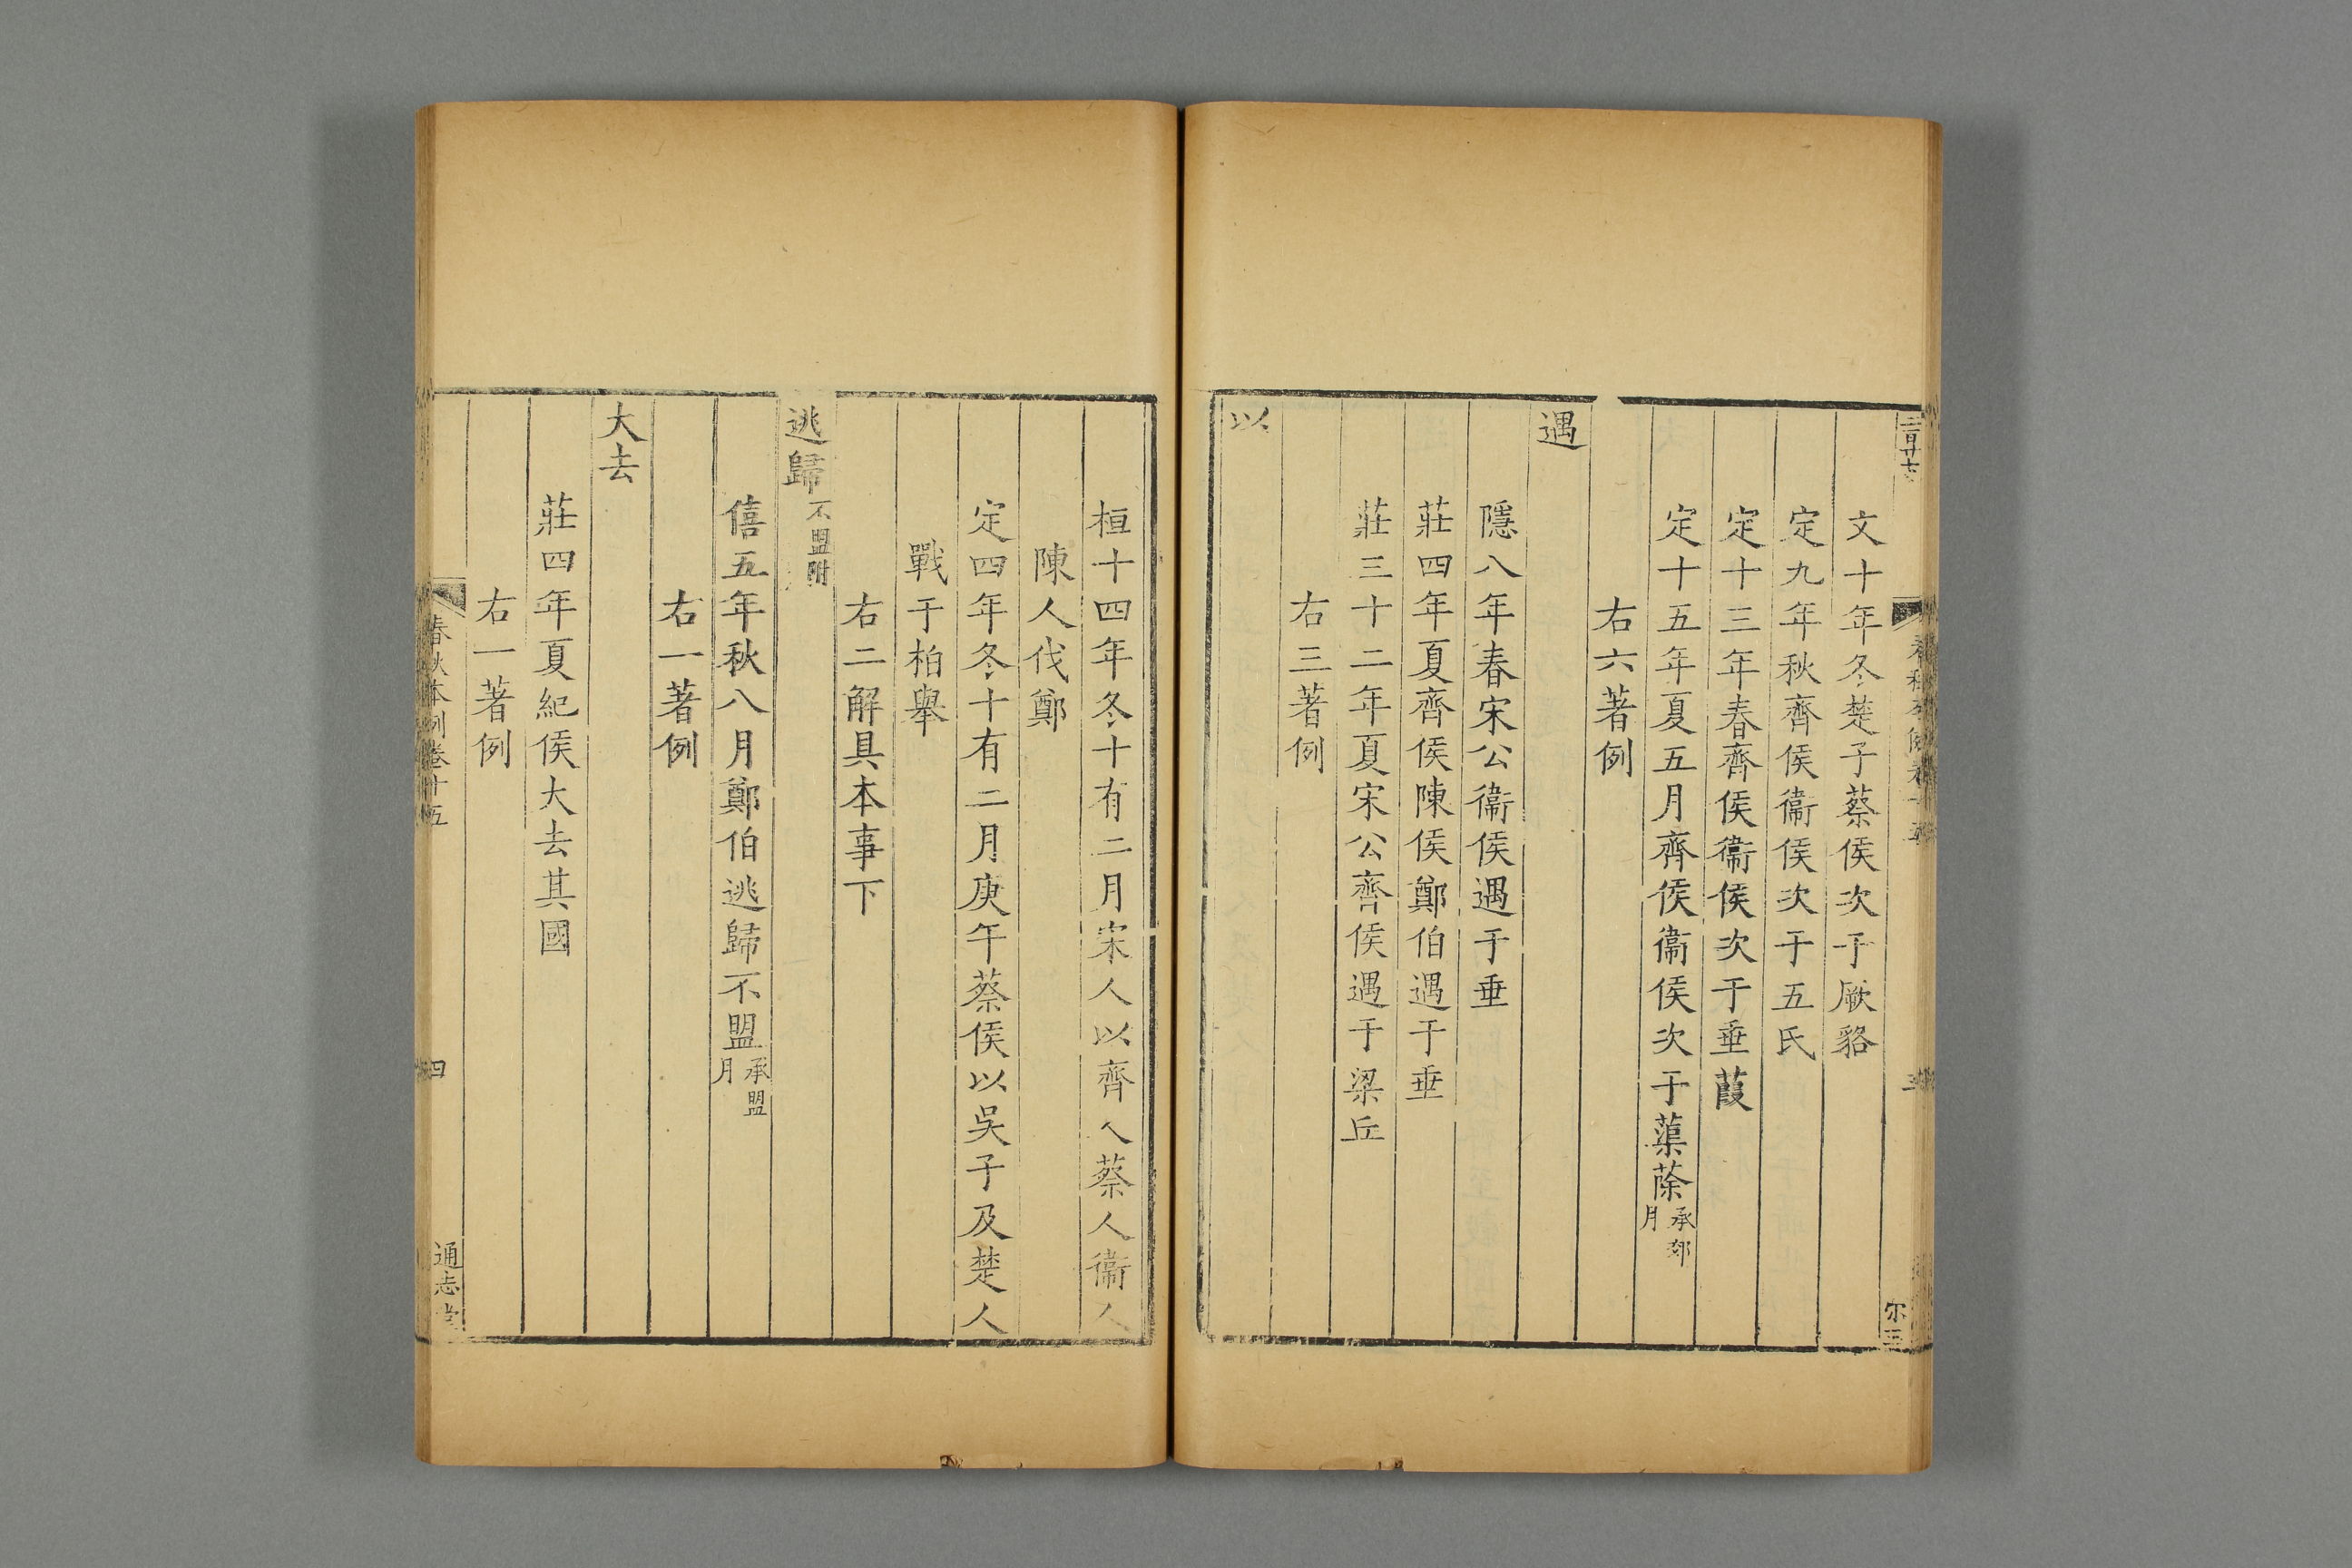 文十年冬楚子蔡侯次于厥貉
定九年秋齊侯衞侯次于五氏
定十三年春齊侯衞侯次于垂葭
定十五年夏五月齊侯衞侯次于蕖蒢承郊月
右六著例
遇
隱八年春宋公衞侯遇于垂
莊四年夏齊侯陳侯鄭伯遇于垂
莊三十二年夏宋公齊侯遇于梁丘
右三著例
以
桓十四年冬十有二月宋人以齊人蔡人衞人
陳人伐鄭
定四年冬十有二月庚午蔡侯以吳子及楚人
戰于柏舉
右二解具本事下
逃歸不盟附
僖五年秋八月鄭伯逃歸不盟承盟月
右一著例
大去
莊四年夏紀侯大去其國
右一著例
春秋本例卷十五
四
通志堂